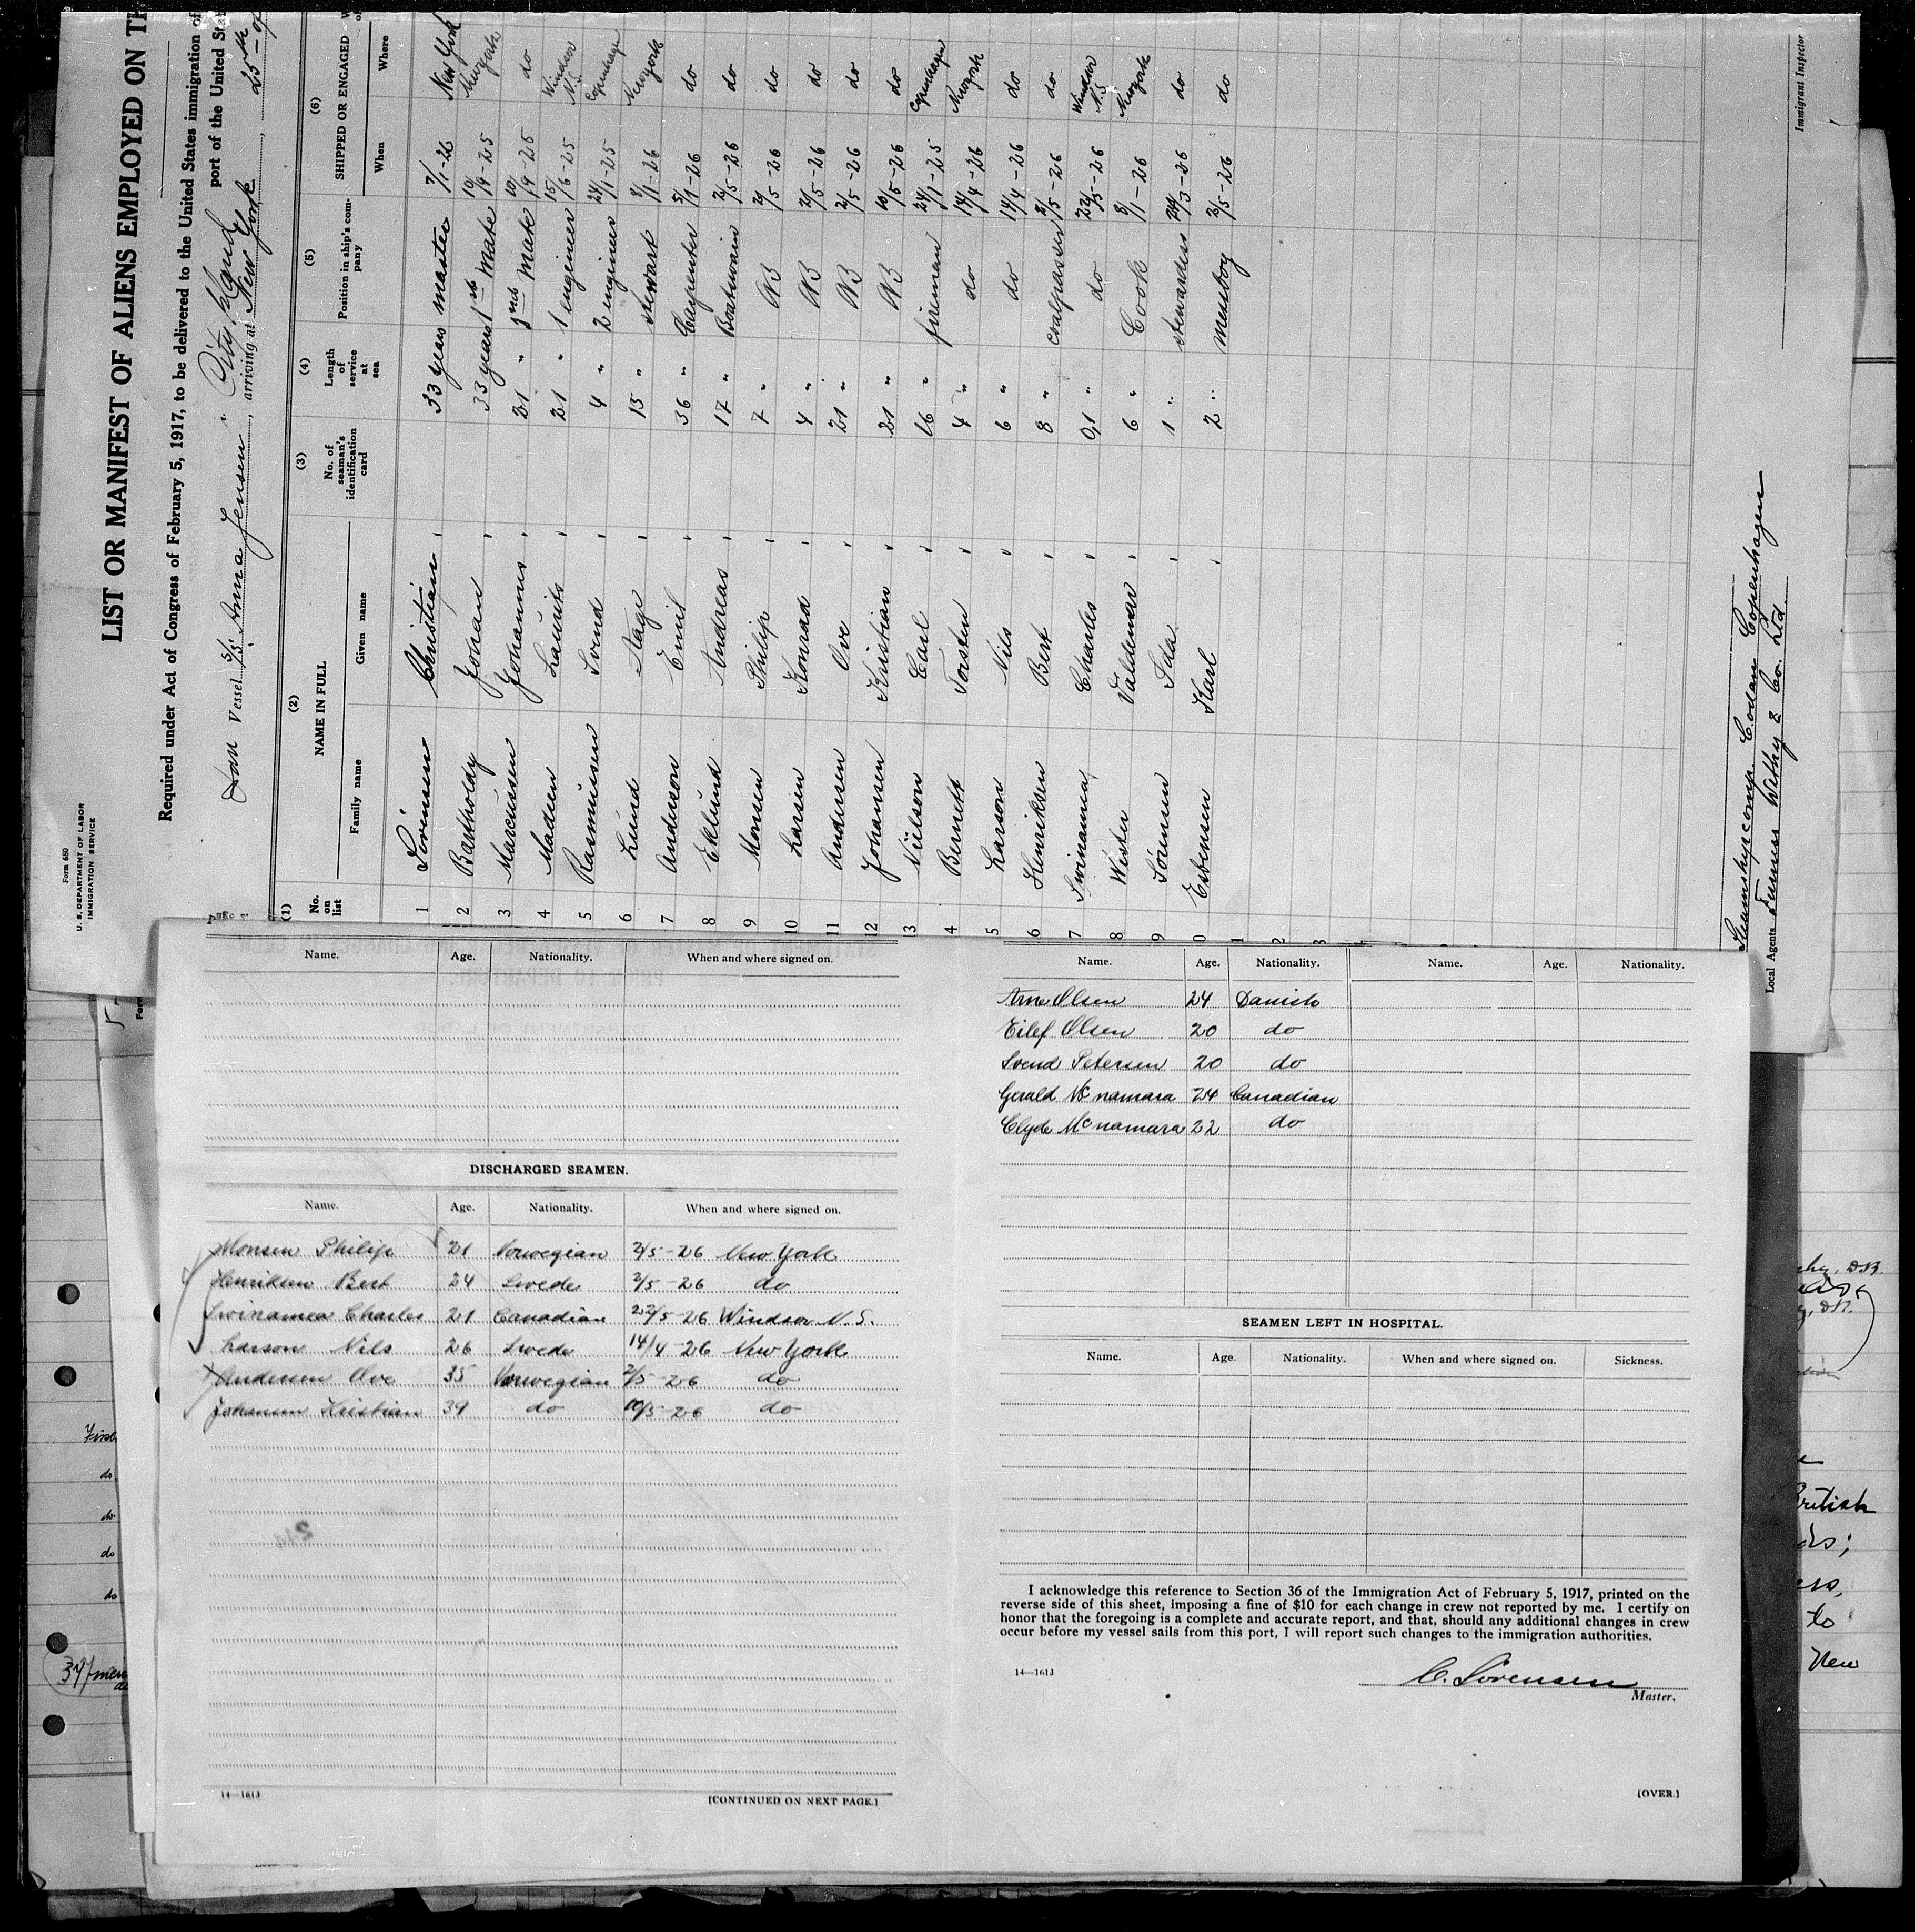 Form 680
U. S. DEPARTMENT OF LABOR
IMMIGRATION SERVICE
LIST OR MANIFEST OF ALIENS EMPLOYED ON TH
Required under Act of Congress of February 5, 1917, to be delivered to the United States immigration of
port of the United Sta
Dan Vessel S/S Anna Jensen, arriving at New York, 25th of
City Island
(1) (2) (3) (4) (5) (6)
No. on list NAME IN FULL No. of seaman's identification card Length of service at sea Position in ship's company SHIPPED OR ENGAGED
Family name Given name When Where
1 Sörensen Christian 33 years master 7/1-26 New York
2 Bartholdy Johan 33 years 1st Mate 10/9-25 Newyork
3 Marcussen Johannes 21 " 2nd Mate 10/9-25 do
4 Madsen Laurits 21 " 1 engineer 15/6-25 Windsor N.S.
5 Rasmussen Svend 4 " 2 engineer 24/1-25 Copenhagen
6 Lund Aage 15 " steward 8/1-26 Newyork
7 Anderson Emil 36 " Carpenter 5/1-26 do
8 Eklund Andreas 17 " Boatswain 2/5-26 do
9 Monsen Philip 7 " AB 2/5-26 do
10 Larsen Konrad 4 " AB 2/5-26 do
11 Andersen Ove 21 " AB 2/5-26 do
12 Johansen Kristian 21 " AB 10/5-26 do
13 Nielson Carl 16 " fireman 24/1-25 Copenhagen
4 Berntt Torsten 4 " do 14/4-26 Newyork
5 Larson Nils 6 " do 14/4-26 do
6 Henriksen Bert 8 " coalpasser 2/5-26 do
7 Swinamea Charles 0,1 " do 22/5-26 Windsor N.S.
8 Wester Valdemar 6 " Cook 8/1-26 Newyork
9 Sörensen Ida 1 " stewardess 24/3-26 do
0 Esbensen Karl 2 " Messboy 2/5-26 do
1
2
3
Steamshipscomp. Codan Copenhagen
Local Agents Furness Withy & Co. Ltd.
Immigrant Inspector
Name. Age. Nationality. When and where signed on.
DISCHARGED SEAMEN.
Name. Age. Nationality. When and where signed on.
Monsen Philip 21 Norwegian 2/5-26 New York
Henriksen Bert 24 Swede 2/5-26 do
Swinamea Charles 21 Canadian 22/5-26 Windsor N.S.
Larson Nils 26 Swede 14/4-26 New York
Andersen Ove 35 Norwegian 2/5-26 do
Johansen Kristian 39 do 10/5-26 do
14—1613
[CONTINUED ON NEXT PAGE.]
Name. Age. Nationality. Name. Age. Nationality.
Arne Olsen 24 Danish
Eilef Olsen 20 do
Svend Petersen 20 do
Gerald Mc namara 24 Canadian
Clyde Mc namara 22 do
SEAMEN LEFT IN HOSPITAL.
Name. Age. Nationality. When and where signed on. Sickness.
I acknowledge this reference to Section 36 of the Immigration Act of February 5, 1917, printed on the
reverse side of this sheet, imposing a fine of $10 for each change in crew not reported by me. I certify on
honor that the foregoing is a complete and accurate report, and that, should any additional changes in crew
occur before my vessel sails from this port, I will report such changes to the immigration authorities.
14—1613
C. Sörensen
Master.
[OVER.]
do
do
do
do
British
to
New